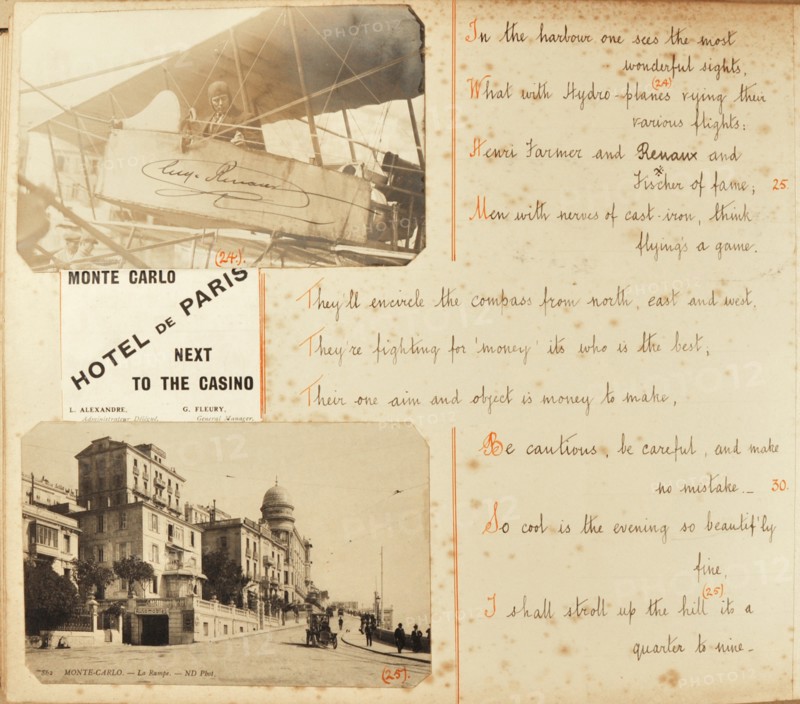 Eug. Renaux
(24).
MONTE CARLO
HOTEL DE PARIS
NEXT
TO THE CASINO
L. ALEXANDRE,
Administrateur Délégué.
G. FLEURY,
General Manager.
MONTE-CARLO. — La Rampe. — ND Phot.
(25).
In the harbour one sees the most
wonderful sights,
(24)
What with Hydro-planes vying their
various flights:
Henri Farmer and Renaux and
Fischer of fame; 25
Men with nerves of cast-iron, think
flying's a game.
They'll encircle the compass from north, east and west,
They're fighting for 'money' its who is the best;
Their one aim and object is money to make,
Be cautious, be careful, and make
no mistake._ 30.
So cool is the evening so beautif'ly
fine,
(25)
I shall stroll up the hill its a
quarter to nine_
PHOTO12